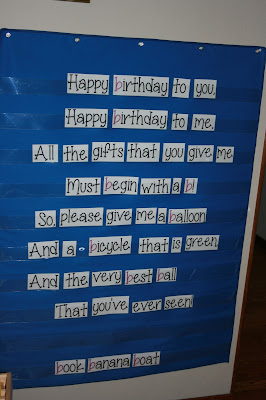 Happy birthday to you,
Happy birthday to me.
All the gifts that you give me
Must begin with a b!
So, please give me a balloon
And a bicycle that is green
And the very best ball
That you've ever seen!
book banana boat